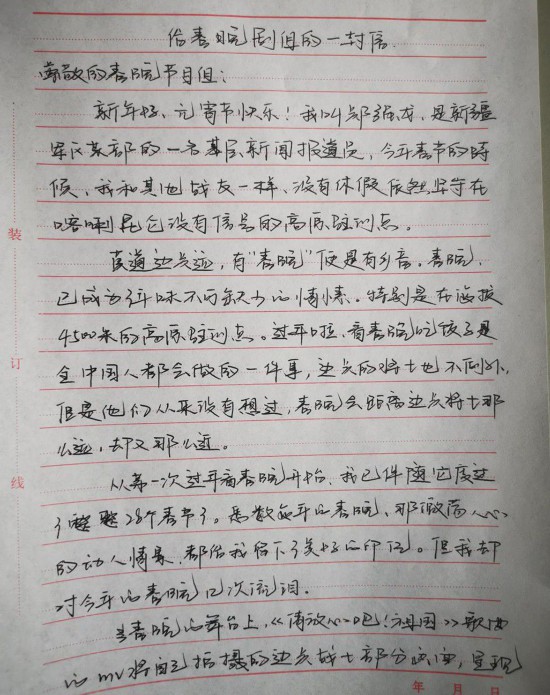 给春晚剧组的一封信
尊敬的春晚节目组：
新年好，元宵节快乐！我叫郭强龙，是新疆
军区某部的一名基层新闻报道员，今年春节的时
候，我和其他战友一样，没有休假依然坚守在
喀喇昆仑没有信号的高原驻训点。
莫道边关远，有“春晚”便是有乡音。春晚，
已成为年味不可缺少的情愫。特别是在海拔
4500米的高原驻训点。过年啦，看春晚吃饺子是
全中国人都会做的一件事，边关的将士也不例外，
但是他们从来没有想过，春晚会距离边关将士那
么远，却又那么近。
从第一次过年看春晚开始，我已伴随它度过
了整整28个春节了。悉数每年的春晚，那激荡人心
的动人情景，都给我留下了美好的印记。但我却
对今年的春晚几次流泪。
当春晚的舞台上，《请放心吧！祖国》歌曲
的mv将自己拍摄的边关战士部分画面，呈现
装
订
线
年 月 日